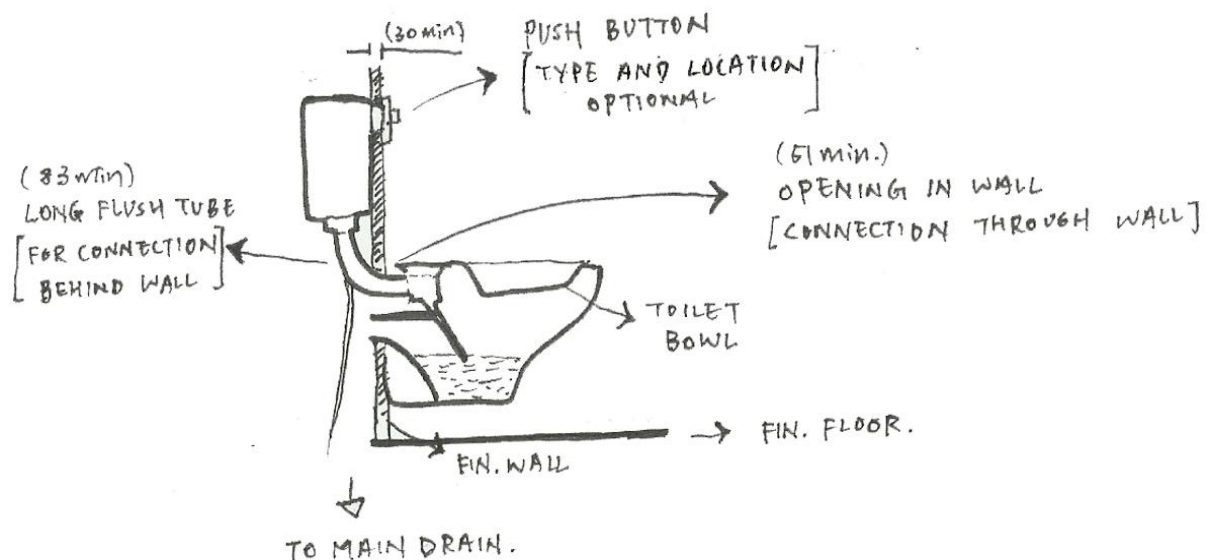 (30 min)
PUSH BUTTON
[TYPE AND LOCATION
OPTIONAL]
(83 min)
LONG FLUSH TUBE
[FOR CONNECTION
BEHIND WALL]
(51 min.)
OPENING IN WALL
[CONNECTION THROUGH WALL]
TOILET
BOWL
FIN. FLOOR.
FIN. WALL
TO MAIN DRAIN.